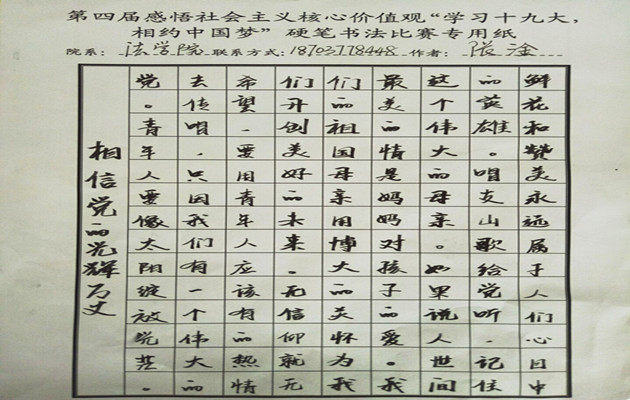 第四届感悟社会主义核心价值观“学习十九大，
相约中国梦”硬笔书法比赛专用纸
院系：法学院 联系方式：18703778448 作者：张
鲜花和赞美永远属于人们心目中
的英雄。唱支山歌给党听，记住
这个伟大的母亲。如果说人世间
最美的情是妈妈对孩子的爱。我
们的祖国母亲用博大的关怀为我
们开创美好的未来。无信仰就无
希望，要用青年人应该有的热情
去传唱，只因我们有一个伟大的
党。青年人要像太阳绽放光芒。
相信党的光辉万丈